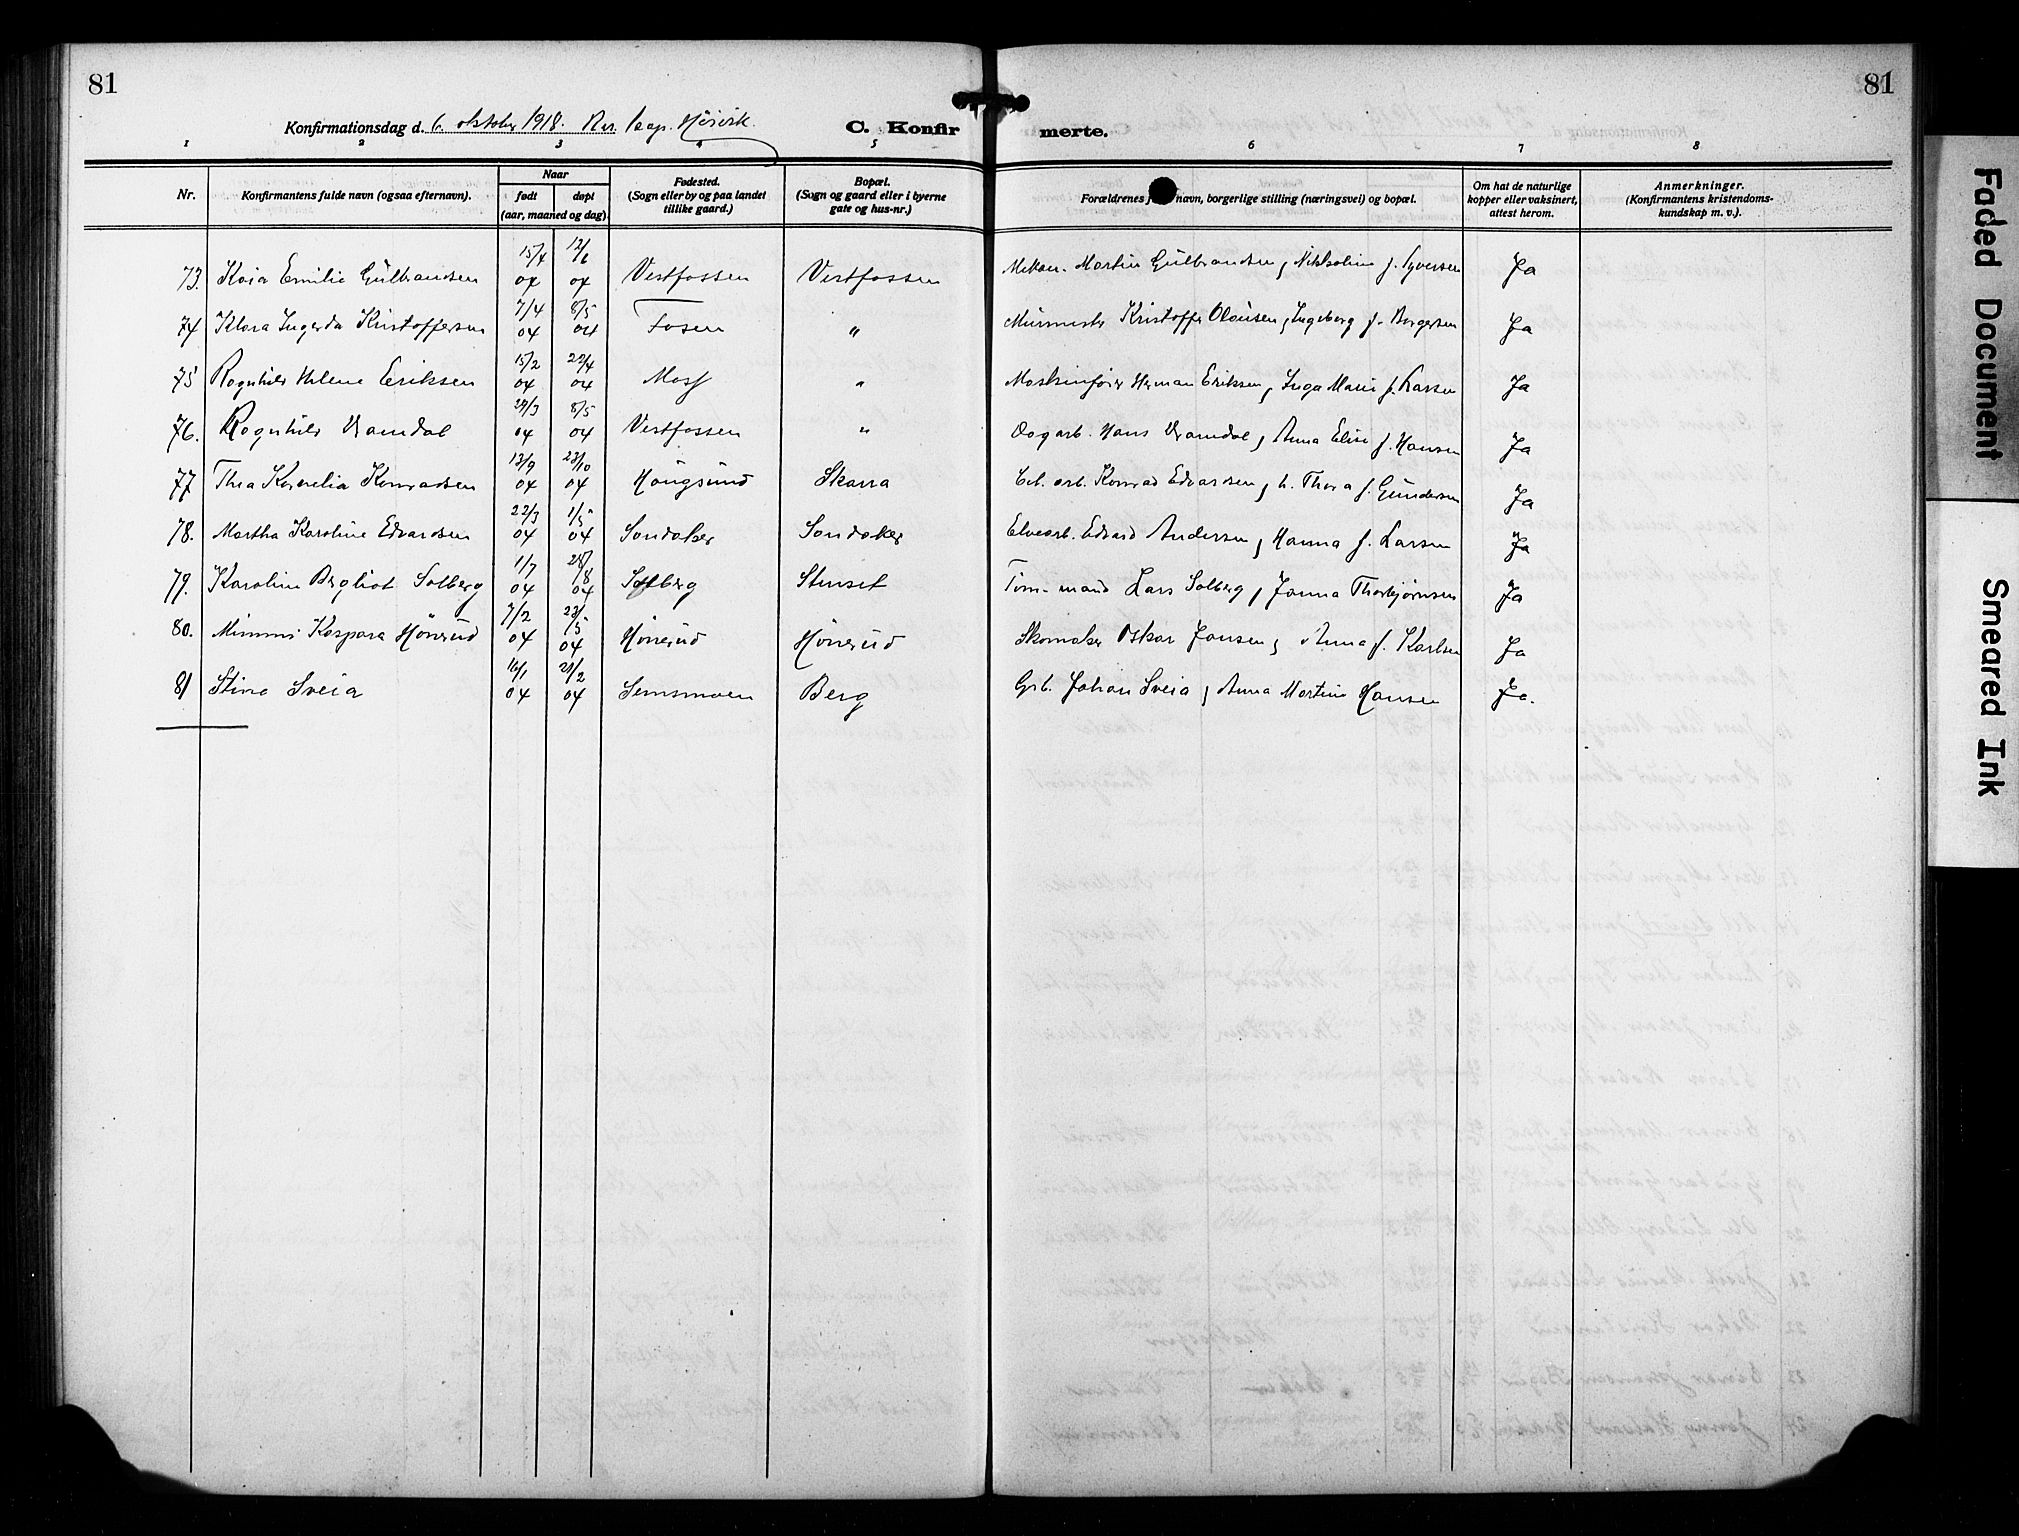 81
81
Konfirmationsdag d. 6. oktober 1918. Res. kap. Høivik.
C. Konfirmerte.
1 2 3 4 5 6 7 8
Nr.
Konfirmantens fulde navn (ogsaa efternavn).
Naar
født døpt
(aar, maaned og dag)
Fødested.
(Sogn eller by og paa landet
tillike gaard.)
Bopæl.
(Sogn og gaard eller i byerne
gate og hus-nr.)
Forældrenes navn, borgerlige stilling (næringsvei) og bopæl.
Om hat de naturlige
kopper eller vaksinert,
attest herom.
Anmerkninger.
(Konfirmantens kristendoms-
kundskap m. v.).
73. Kaia Emilie Gulbrandsen 15/4 04 12/6 04 Vestfossen Vestfossen Mekan. Martin Gulbrandsen, Nikoline f. Syversen Ja
74 Klara Ingerda Kristoffersen 7/4 04 8/5 04 Fosen " Murmester Kristoffer Olausen, Ingeborg f. Borgersen Ja
75 Ragnhild Helene Eriksen 15/2 04 22/4 04 Moss " Maskinfører Herman Eriksen, Inga Marie f. Larsen Ja
76. Ragnhild Vramdal 24/3 04 8/5 04 Vestfossen " Dagarb. Hans Vramdal, Anna Elise f. Hansen Ja
77 Thea Kornelia Konradsen 13/9 04 23/10 04 Haugsund Skarra Cel. arb. Konrad Edvardsen, h. Thora f. Gundersen Ja
78. Martha Karoline Edvardsen 22/3 04 1/5 04 Sandaker Sandaker Elvearb. Edvard Andersen, Hanna f. Larsen Ja
79. Karoline Bergliot Solberg 11/7 04 28/8 04 Solberg Stenset Tøm.-mand Lars Solberg, Janna Thorbjørnsen Ja
80. Mimmi Kaspara Hønerud 7/2 04 23/5 04 Hønerud Hønerud Skomaker Oskar Jansen, Anna f. Karlsen Ja
81 Stina Sveia 16/1 04 21/2 04 Semsmoen Berg Grb. Johan Sveia, Anna Martine Hansen Ja.
Faded Document
Smeared Ink